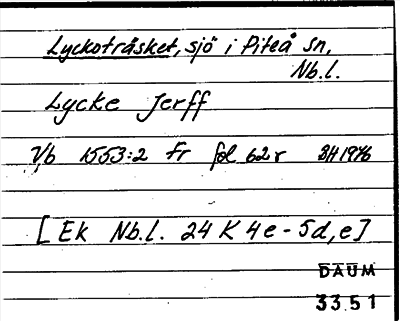 Lyckoträsket, sjö i Piteå sn,
Nb.l.
Lycke Jerff
V,b 1553:2 Fr fol 62 r BH 1976
[Ek Nb.l. 24 K 4e-5d,e]
DAUM
3351